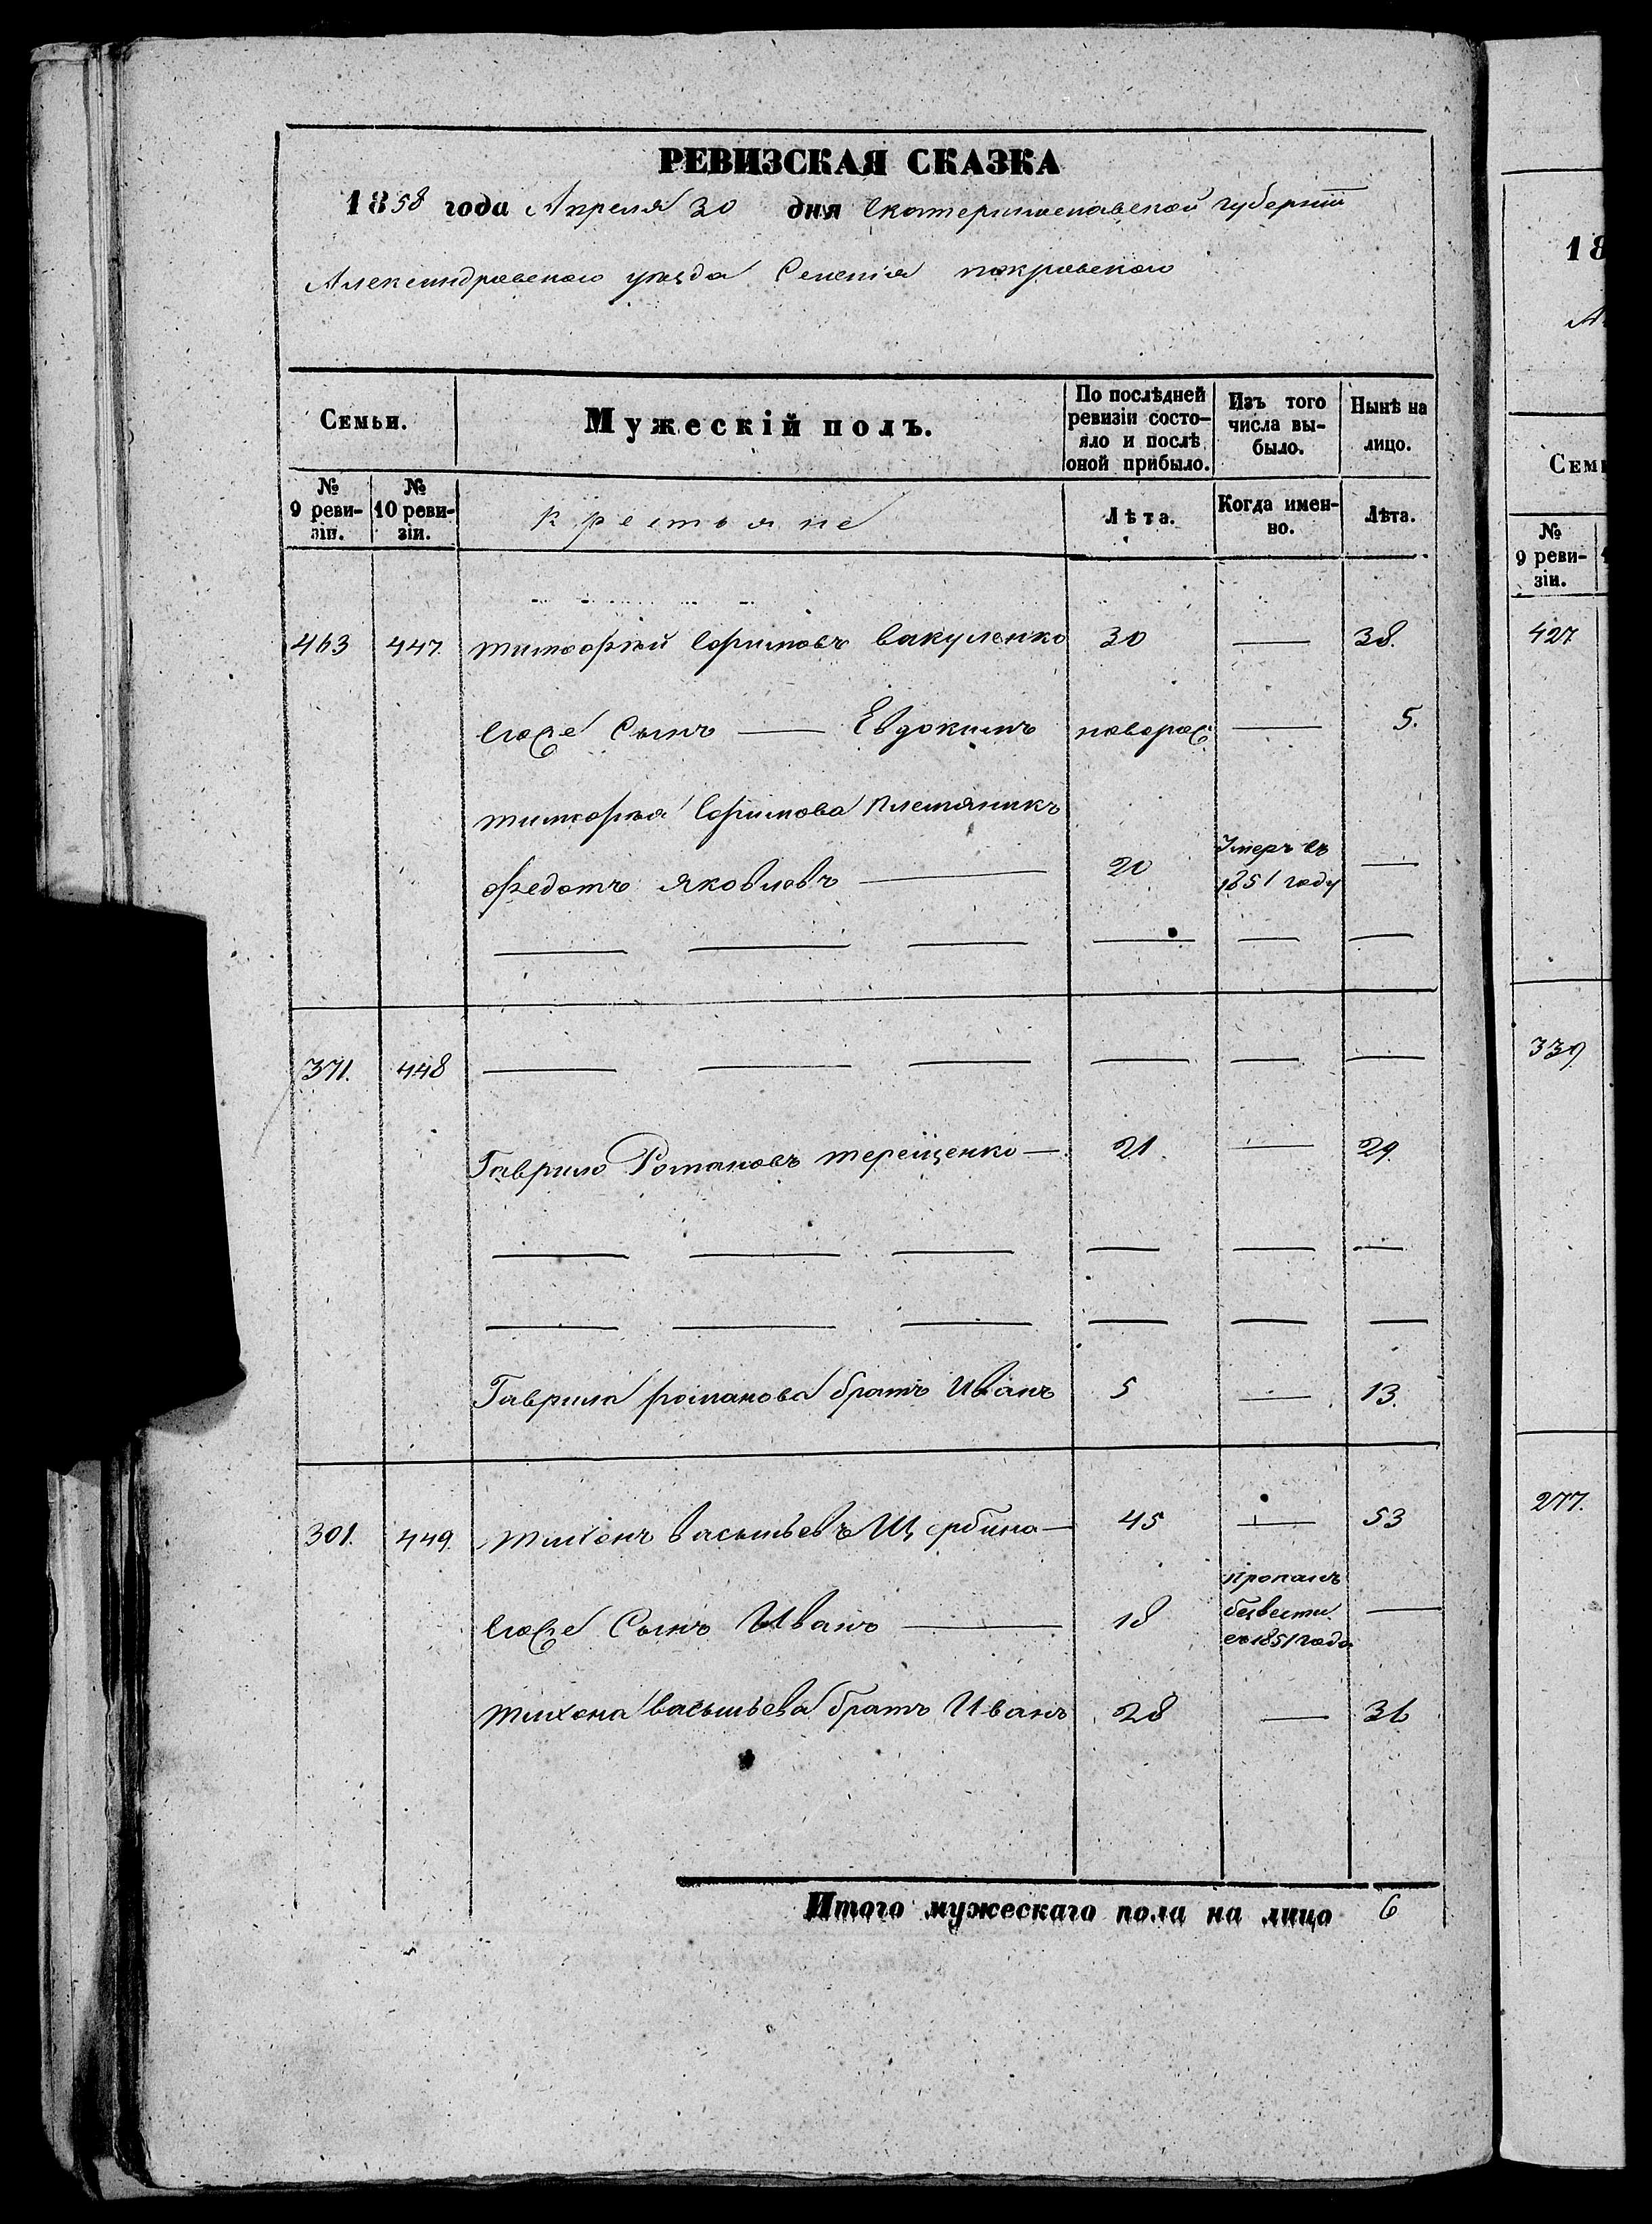 РЕВИЗСКАЯ СКАЗКА
1858 года Апреля 30 дня Екатеринославской губерніи
Александровского уѣзда Селенія покровского
Семьи.
Мужескій полъ.
По послѣдней ревизіи состояло и послѣ оной прибыло.
Изъ того числа выбыло.
Нынѣ на лицо.
№ 9 ревизіи.
№ 10 ревизіи.
Крестьяне
Лѣта.
Когда именно.
Лѣта.
463 447. тимофѣй Ефимовъ вакуленко 30 — 38.
Его же Сынъ — Евдокимъ новорож: — 5.
тимофѣя Ефимова племяникъ
федотъ яковлевъ — 20 Умеръ въ 1851 году —
— — — — — —
371. 448 — — — — — —
Гаврило Романовъ терещенко — 21. — 29.
— — — — — —
— — — — — —
Гаврила романова братъ Иванъ 5 — 13.
301. 449. тихонъ васильевъ Щербина — 45 — 53
Его же Сынъ Иванъ — 18 пропалъ безвести въ 1851 года —
тихона васильева братъ Иванъ 28 — 36
Итого мужескаго пола на лицо 6
18
Семь
№
9 ревизіи.
427
339
277.